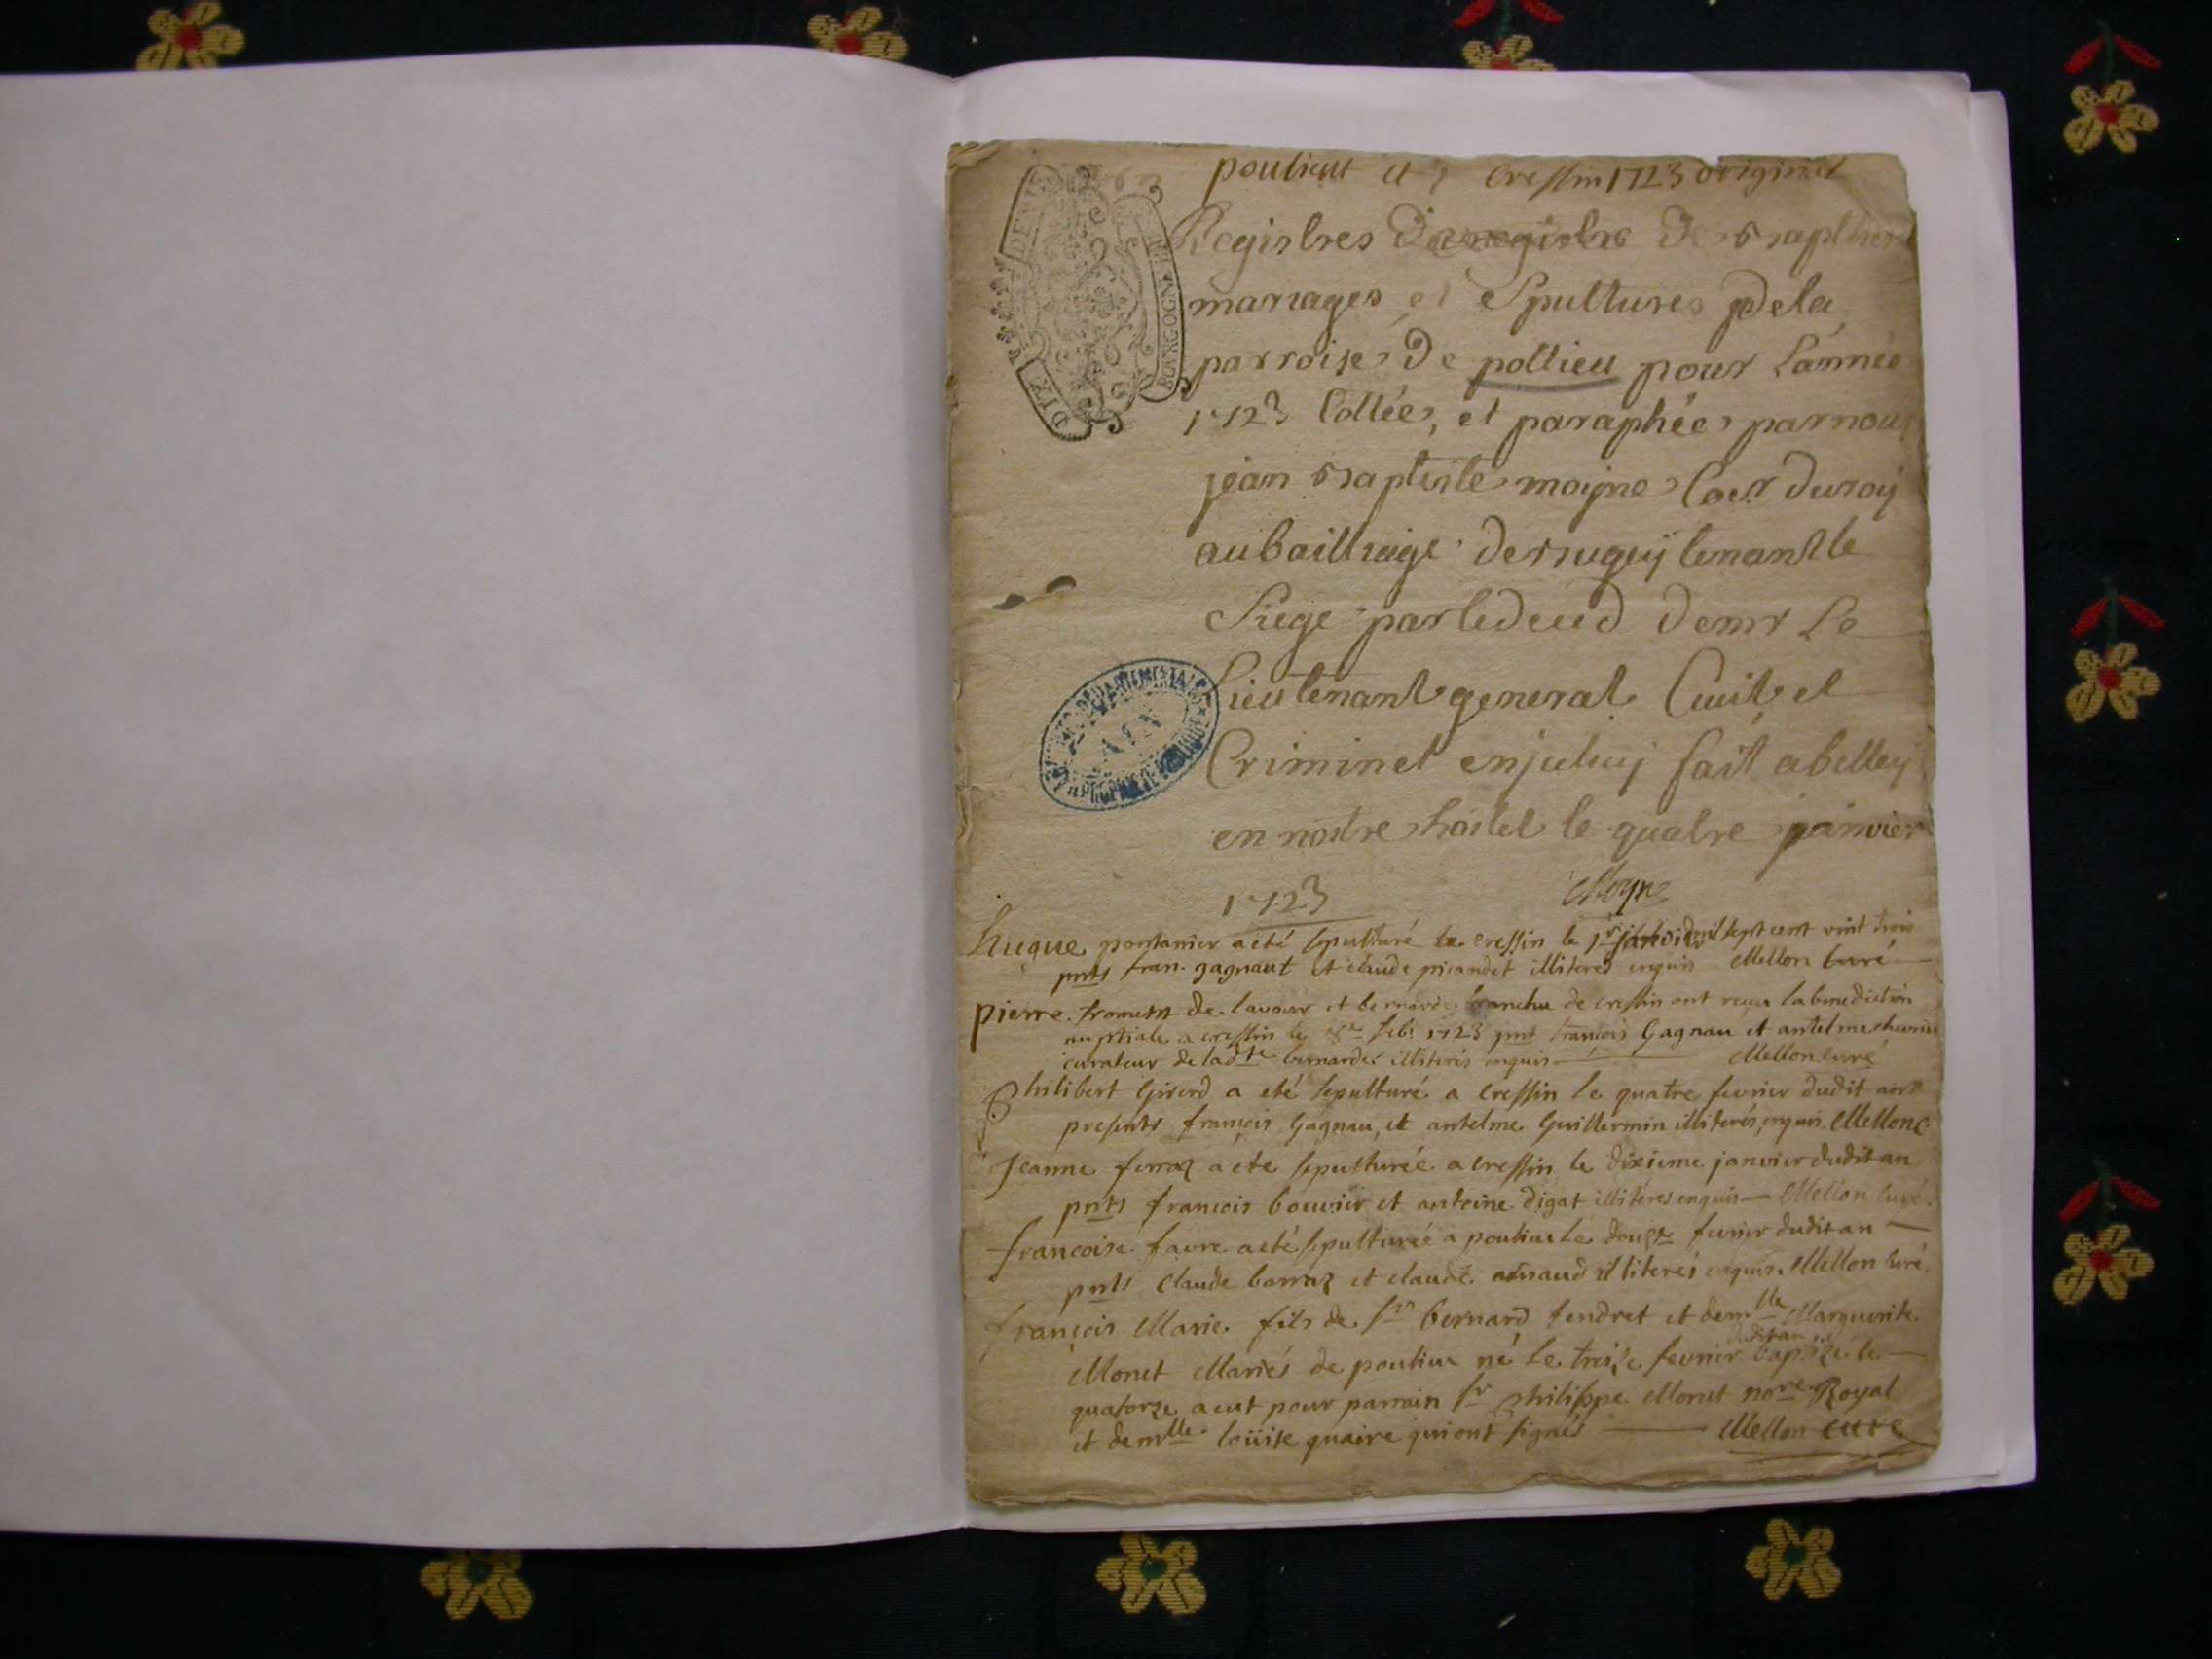 poulieu et cressin 1723 original
Registres de baptesmes
mariages et Spultures de la
parroise de pollieu pour Lannée
1723 Collée, et paraphée par nous
jean baptiste moyne Coer du roy
au bailliage de bugey tenant le
Siege par le deced de mr Le
Lieutenant general Civil et
Criminel en jceluy fait a belley
en nostre hostel le quatre janvier
1723 Moyne
DIX DEN
BOVRGOGNE
ARCHIVES DÉPARTEMENTALES
AIN
PROPRIÉTÉ PUBLIQUE
huque pontanier a eté sepulturé a cressin le 1r janvier mil sept cent vint trois
pnts fran. gagnaut et claude picandet illiteres enquis Mellon curé
pierre froment de lavour et bernarde de cressin ont reçu la benediction
nuptiale a cressin le feb. 1723 pnt francois Gagnau et antelme chevrier
curateur de ladte bernarde illiterés enquis Mellon curé
Philibert Girerd a eté sepulturé a cressin le quatre fevrier dudit an
presents françois Gagnau, et antelme Guillermin illiterés, enquis Mellon c
Jeanne ferraz a ete sepulturée a cressin le dixieme janvier dudit an
pnts francois bouvier et antoine digat illiteres enquis Mellon curé.
francoise favre a eté sepulturée a poulieu le douze fevrier dudit an
pnts Claude barraz et claude arnaud illiterés enquis. Mellon curé.
françois Marie fils de sr bernard tendret et demlle Marguerite
Monet Mariés de poulieu né le treize fevrier dudit an baptizé le
quatorze a eut pour parrain sr philippe Monet nore Royal
et demlle loüise quaire qui ont signés Mellon curé